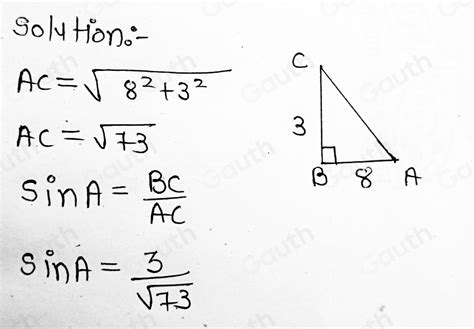 Solution:-
AC = √8²+3²
AC = √73
SinA = BC/AC
SinA = 3/√73
C
3
B 8 A
Gauth